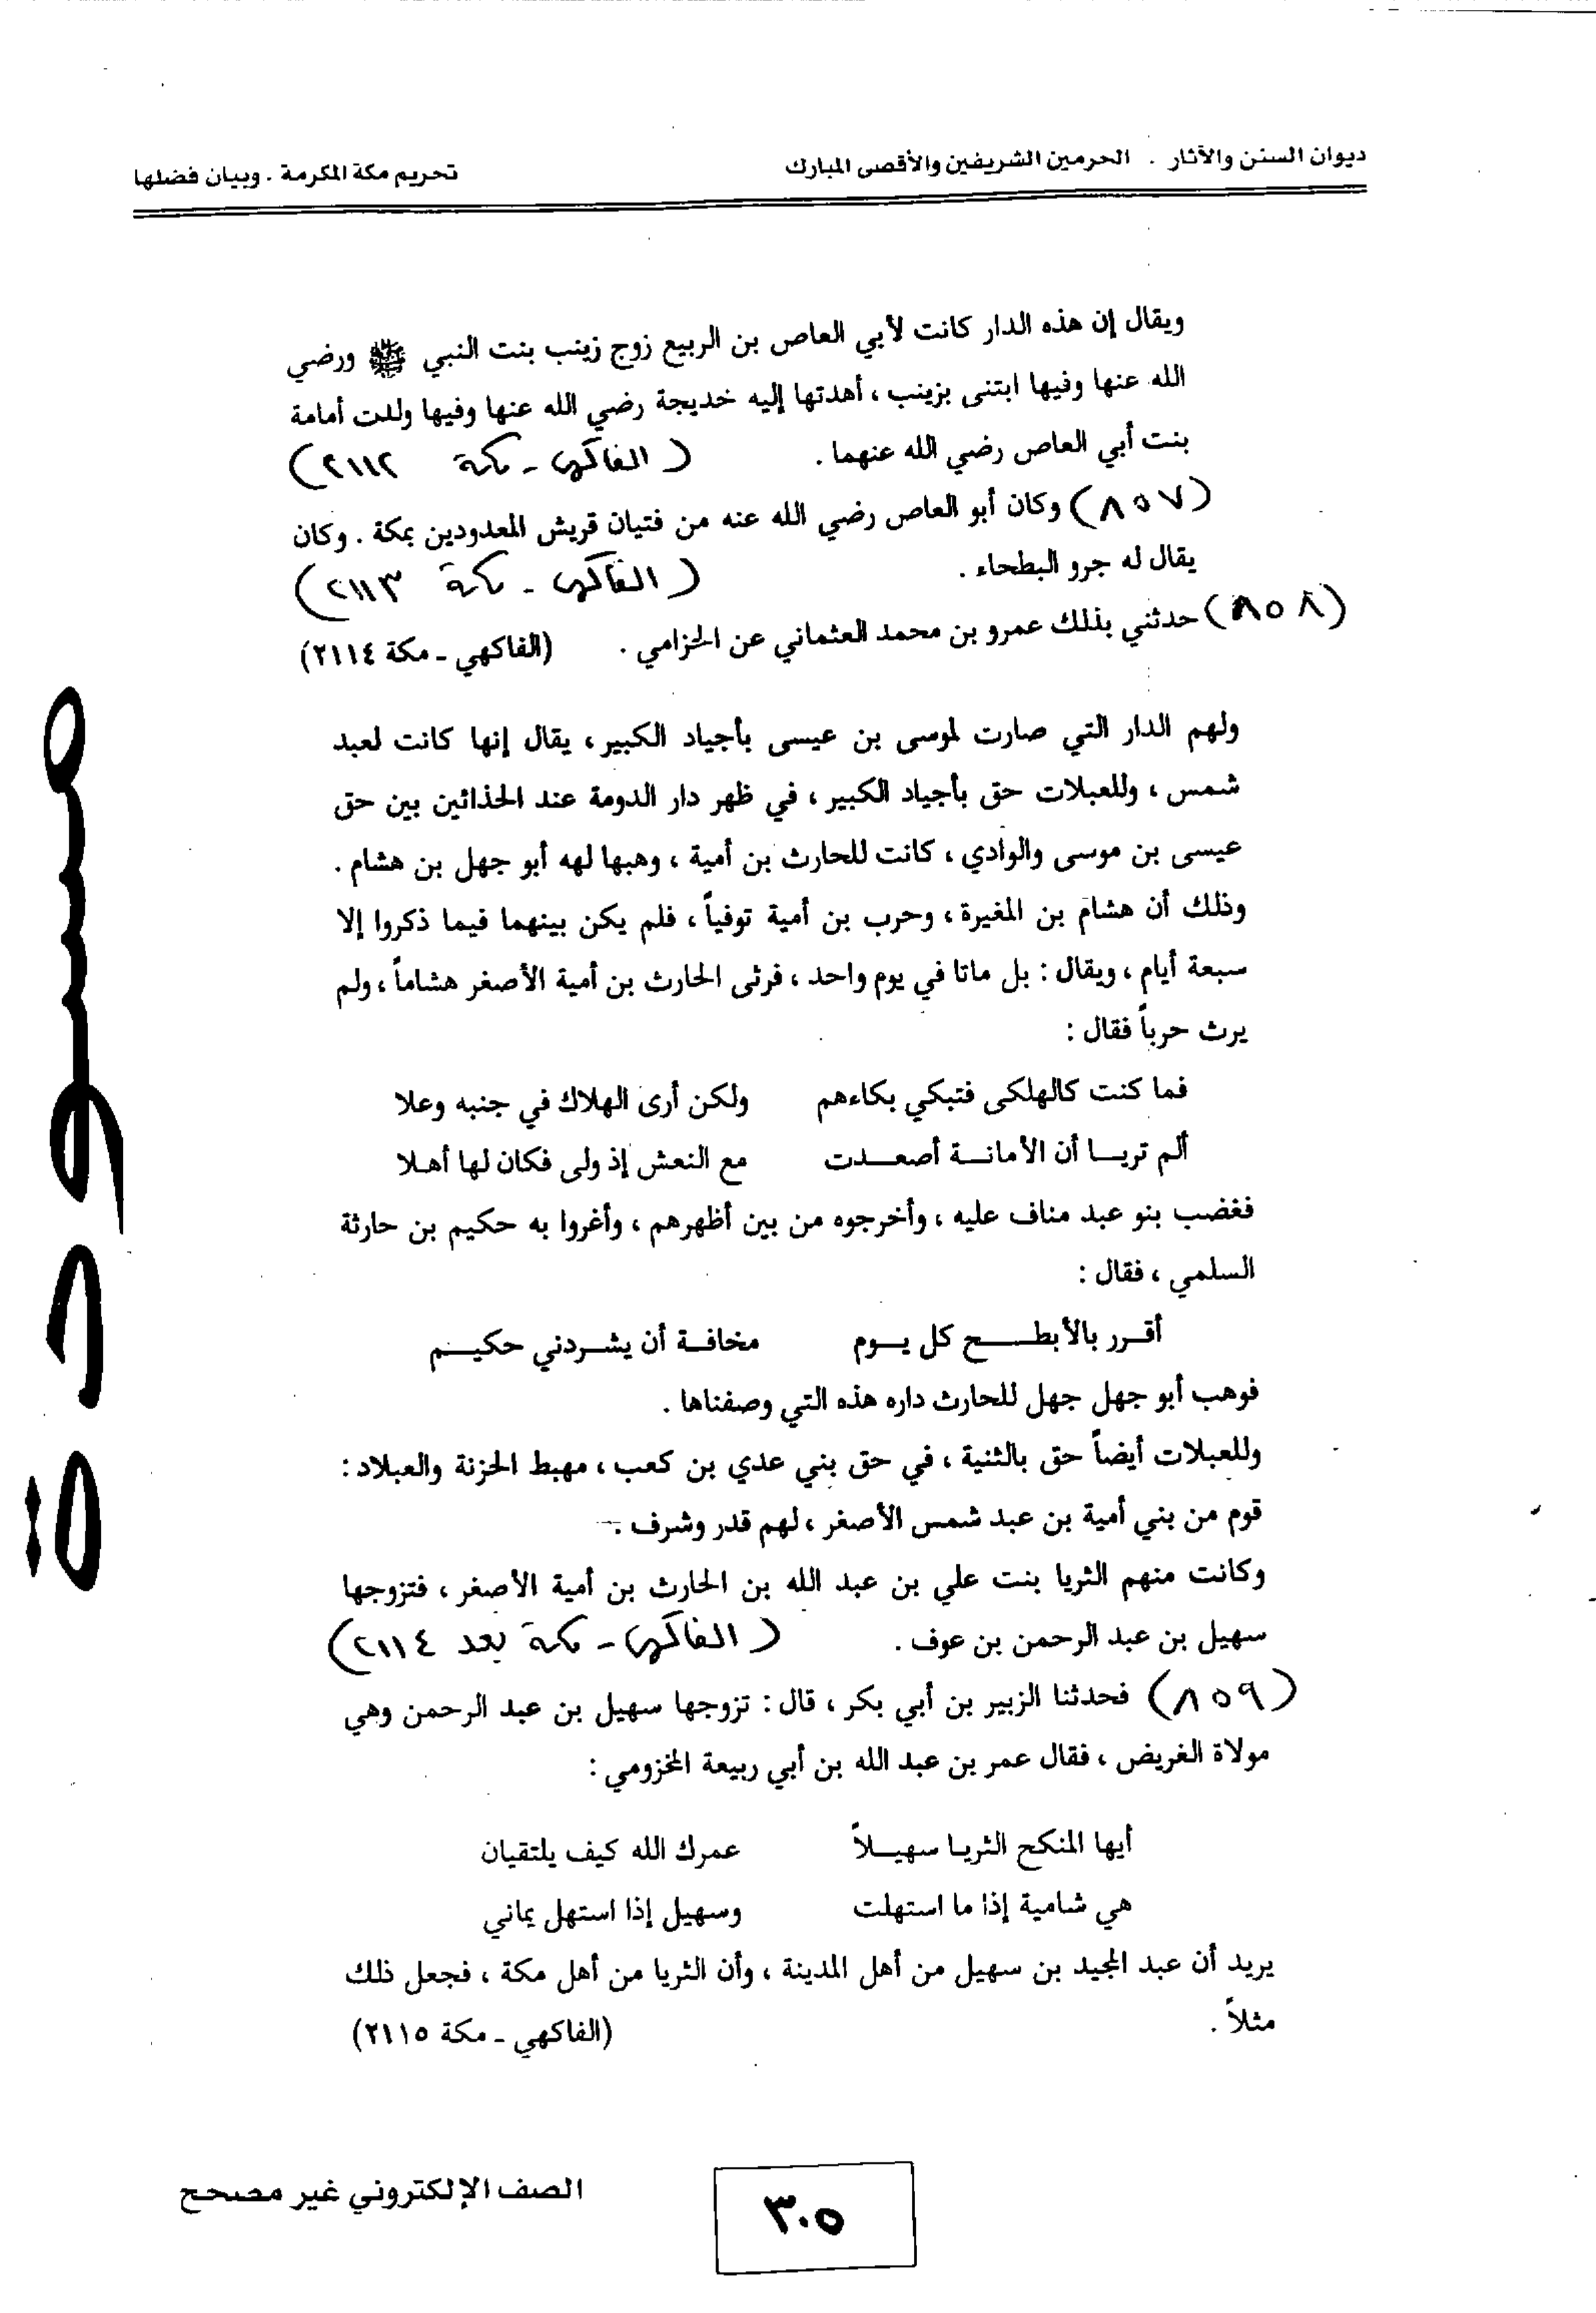 ديوان السنن والآثار . الحرمين الشريفين والأقصى المبارك
تحريم مكة المكرمة . وبيان فضلها
ويقال إن هذه الدار كانت لأبي العاص بن الربيع زوج زينب بنت النبي ﷺ ورضي
الله عنها وفيها ابتنى بزينب ، أهدتها إليه خديجة رضي الله عنها وفيها ولدت أمامة
بنت أبي العاص رضي الله عنهما . (الفاكهي - مكة ٢١١٢)
(٨٥٧) وكان أبو العاص رضي الله عنه من فتيان قريش المعدودين بمكة . وكان
يقال له جرو البطحاء . (الفاكهي - مكة ٢١١٣)
(٨٥٨) حدثني بذلك عمرو بن محمد العثماني عن الحزامي . (الفاكهي - مكة ٢١١٤)
ولهم الدار التي صارت لموسى بن عيسى بأجياد الكبير ، يقال إنها كانت لعبد
شمس ، وللعبلات حق بأجياد الكبير ، في ظهر دار الدومة عند الحذائين بين حق
عيسى بن موسى والوادي ، كانت للحارث بن أمية ، وهبها لهه أبو جهل بن هشام .
وذلك أن هشام بن المغيرة ، وحرب بن أمية توفياً ، فلم يكن بينهما فيما ذكروا إلا
سبعة أيام ، ويقال : بل ماتا في يوم واحد ، فرثى الحارث بن أمية الأصغر هشاماً ، ولم
يرث حرباً فقال :
فما كنت كالهلكى فتبكي بكاءهم ولكن أرى الهلاك في جنبه وعلا
ألم تريا أن الأمانة أصعدت مع النعش إذ ولى فكان لها أهلا
فغضب بنو عبد مناف عليه ، وأخرجوه من بين أظهرهم ، وأغروا به حكيم بن حارثة
السلمي ، فقال :
أقرر بالأبطح كل يوم مخافة أن يشردني حكيم
فوهب أبو جهل جهل للحارث داره هذه التي وصفناها .
وللعبلات أيضاً حق بالثنية ، في حق بني عدي بن كعب ، مهبط الحزنة والعبلاد :
قوم من بني أمية بن عبد شمس الأصغر ، لهم قدر وشرف .
وكانت منهم الثريا بنت علي بن عبد الله بن الحارث بن أمية الأصغر ، فتزوجها
سهيل بن عبد الرحمن بن عوف . (الفاكهي - مكة بعد ٢١١٤)
(٨٥٩) فحدثنا الزبير بن أبي بكر ، قال : تزوجها سهيل بن عبد الرحمن وهي
مولاة الغريض ، فقال عمر بن عبد الله بن أبي ربيعة المخزومي :
أيها المنكح الثريا سهيلاً عمرك الله كيف يلتقيان
هي شامية إذا ما استهلت وسهيل إذا استهل يماني
يريد أن عبد المجيد بن سهيل من أهل المدينة ، وأن الثريا من أهل مكة ، فجعل ذلك
مثلاً . (الفاكهي - مكة ٢١١٥)
مسودة
الصف الإلكتروني غير مصحح
٣٠٥